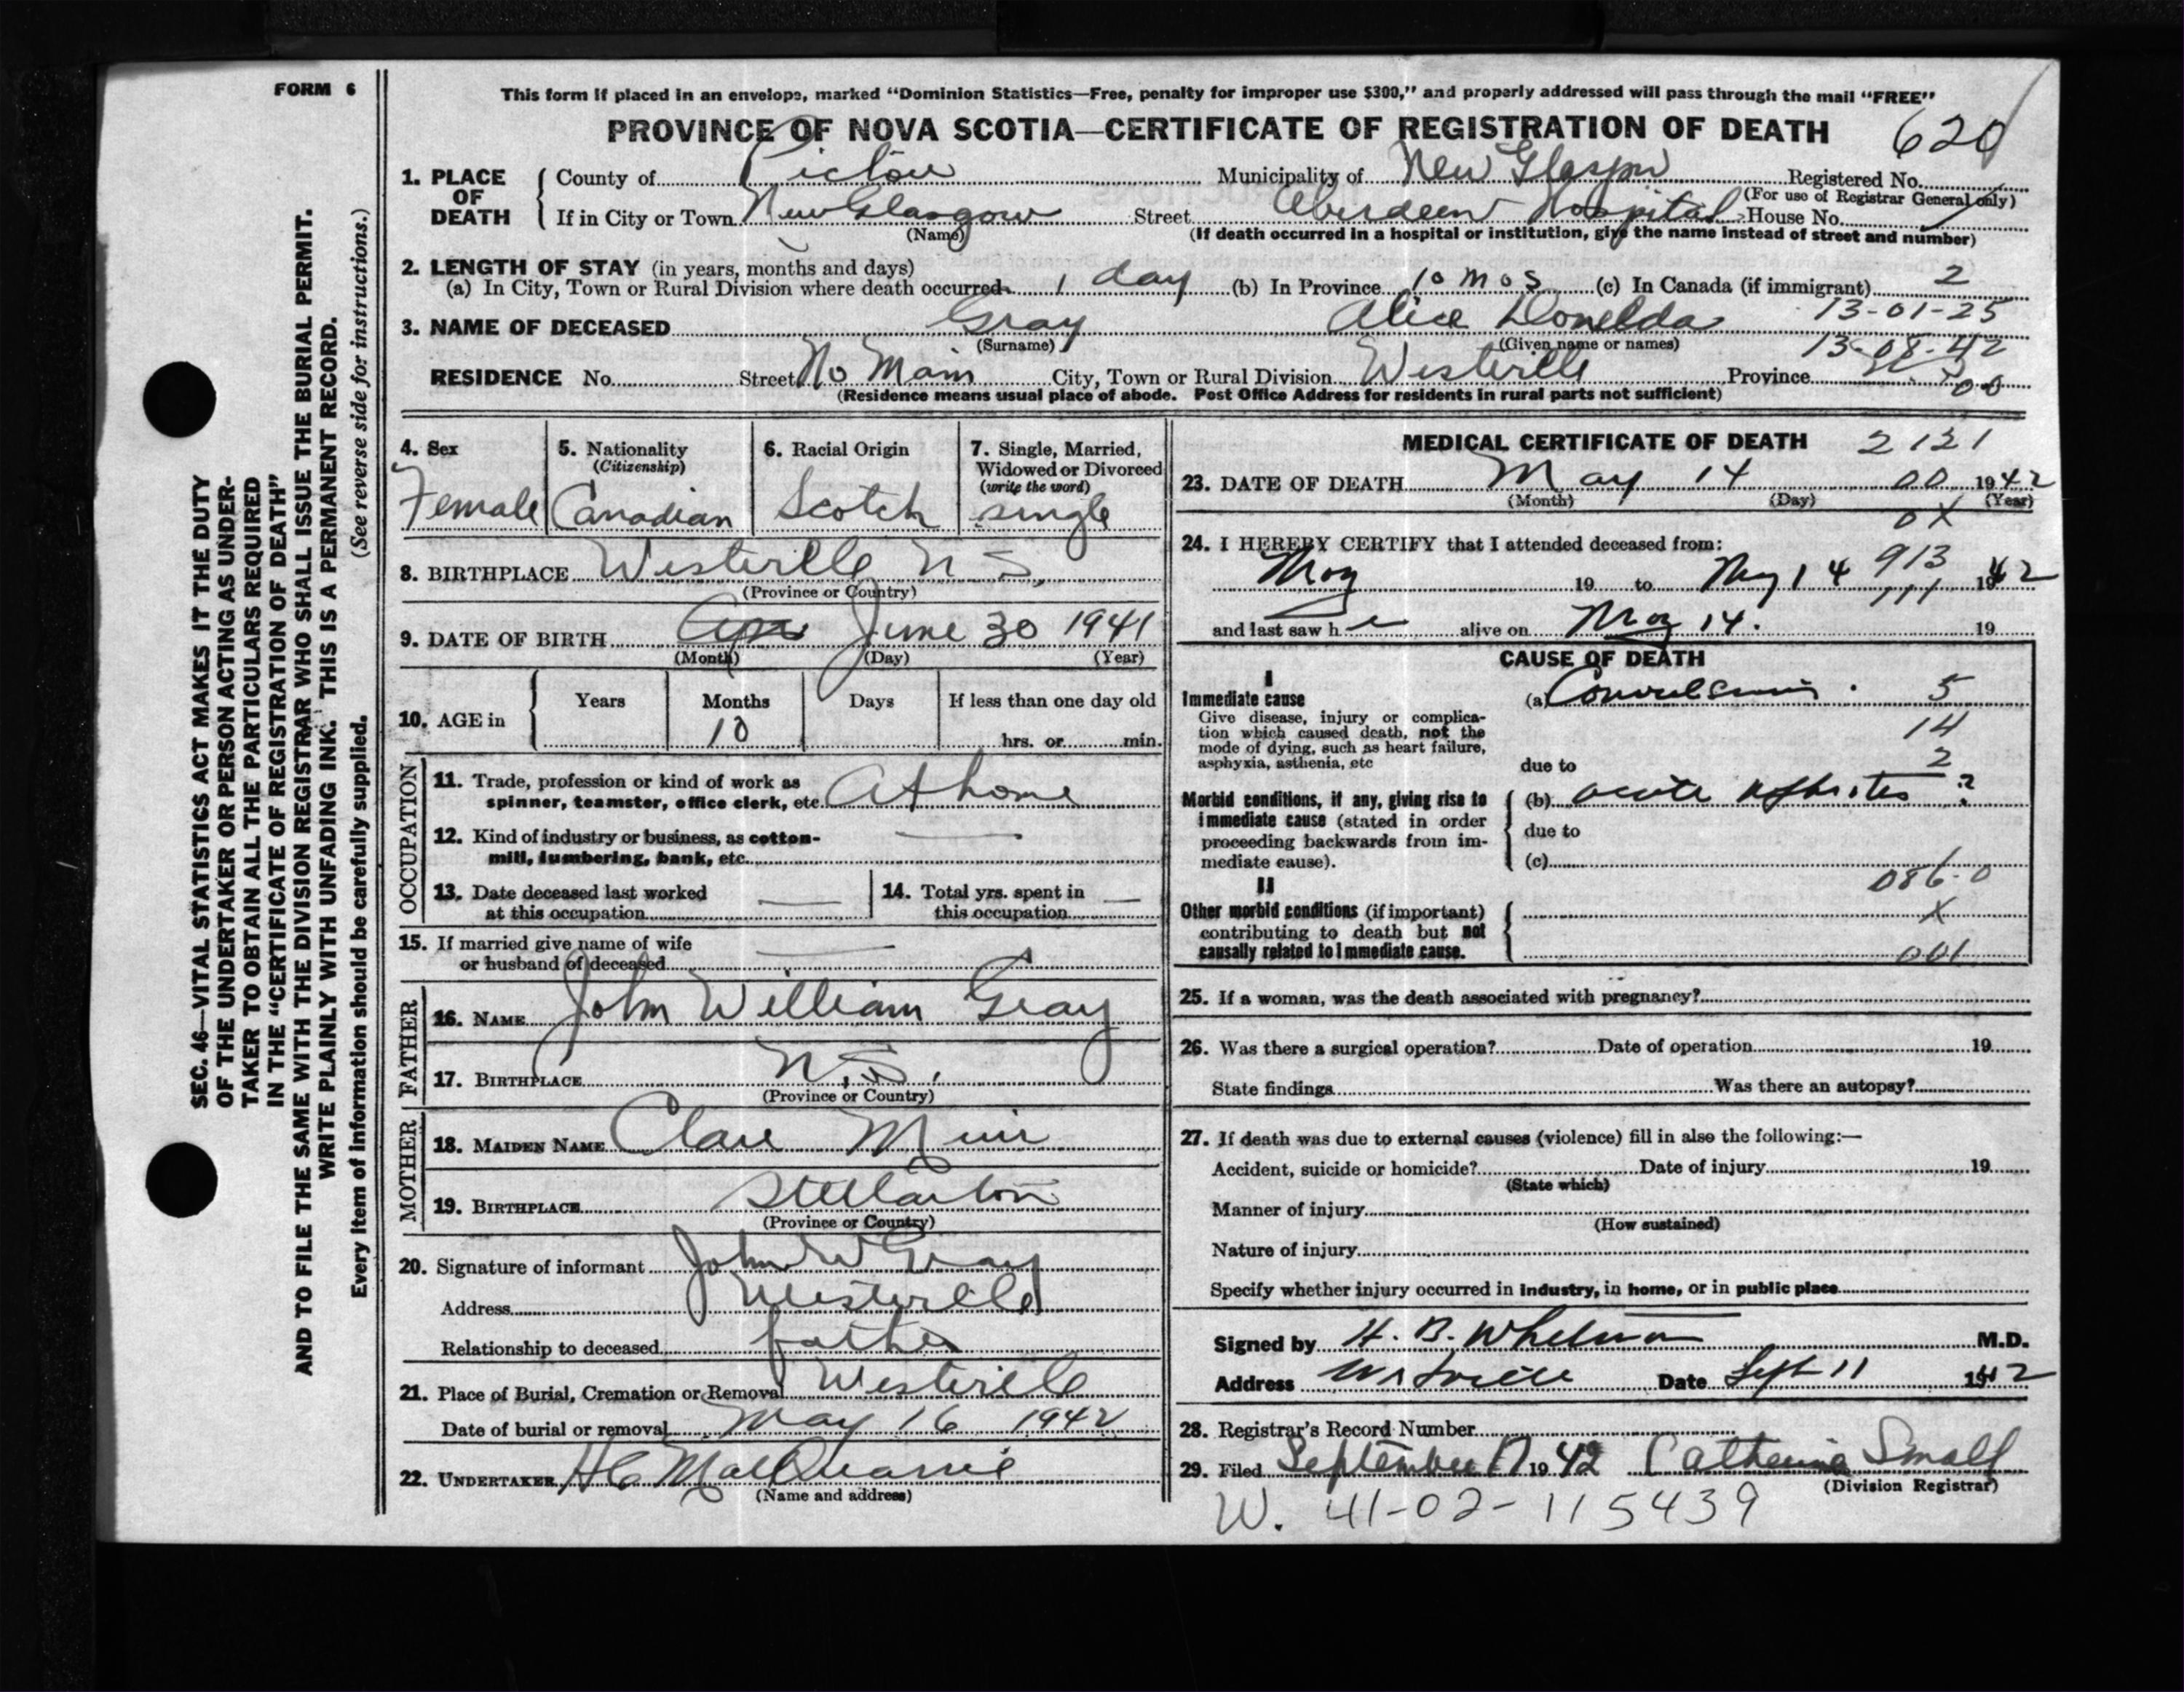 FORM 6
This form if placed in an envelope, marked "Dominion Statistics—Free, penalty for improper use $300," and properly addressed will pass through the mail "FREE"
PROVINCE OF NOVA SCOTIA—CERTIFICATE OF REGISTRATION OF DEATH 620
1. PLACE OF DEATH { County of Pictou Municipality of New Glasgow Registered No.
(For use of Registrar General only)
If in City or Town New Glasgow Street Aberdeen Hospital House No.
(Name) (If death occurred in a hospital or institution, give the name instead of street and number)
2. LENGTH OF STAY (in years, months and days)
(a) In City, Town or Rural Division where death occurred 1 day (b) In Province 10 mos (c) In Canada (if immigrant) 2
3. NAME OF DECEASED Gray Alice Donelda 13-01-25
(Surname) (Given name or names) 13-08-42
RESIDENCE No. Street No Main City, Town or Rural Division Westville Province 00
(Residence means usual place of abode. Post Office Address for residents in rural parts not sufficient)
4. Sex Female
5. Nationality (Citizenship) Canadian
6. Racial Origin Scotch
7. Single, Married, Widowed or Divorced (write the word) single
8. BIRTHPLACE Westville N S.
(Province or Country)
9. DATE OF BIRTH June 30 1941
(Month) (Day) (Year)
10. AGE in { Years Months Days If less than one day old
10 hrs. or min.
OCCUPATION
11. Trade, profession or kind of work as spinner, teamster, office clerk, etc. At home
12. Kind of industry or business, as cotton-mill, lumbering, bank, etc. —
13. Date deceased last worked at this occupation —
14. Total yrs. spent in this occupation —
15. If married give name of wife or husband of deceased —
FATHER
16. NAME John William Gray
17. BIRTHPLACE N.S.
(Province or Country)
MOTHER
18. MAIDEN NAME Clare Muir
19. BIRTHPLACE Stellarton
(Province or Country)
20. Signature of informant John W Gray
Address Westville
Relationship to deceased father
21. Place of Burial, Cremation or Removal Westville
Date of burial or removal May 16 1942
22. UNDERTAKER H C MacQuarrie
(Name and address)
MEDICAL CERTIFICATE OF DEATH 2121
23. DATE OF DEATH May 14 00 1942
(Month) (Day) (Year)
0X
24. I HEREBY CERTIFY that I attended deceased from: 913
May 19 to May 14 1942
111
and last saw h e alive on May 14. 19
CAUSE OF DEATH
I
Immediate cause (a) Convulsions. 5
Give disease, injury or complica- 14
tion which caused death, not the
mode of dying, such as heart failure,
asphyxia, asthenia, etc due to 2
Morbid conditions, if any, giving rise to (b) acute nephritis ?
immediate cause (stated in order due to
proceeding backwards from im-
mediate cause). (c)
II 086-0
Other morbid conditions (if important) X
contributing to death but not
causally related to immediate cause. 001
25. If a woman, was the death associated with pregnancy?
26. Was there a surgical operation? Date of operation 19
State findings Was there an autopsy?
27. If death was due to external causes (violence) fill in also the following:—
Accident, suicide or homicide? Date of injury 19
(State which)
Manner of injury
(How sustained)
Nature of injury
Specify whether injury occurred in industry, in home, or in public place
Signed by H. B. Whelman M.D.
Address Westville Date Sept 11 1942
28. Registrar's Record Number
29. Filed September 17 1942 Catherine Small
(Division Registrar)
W. 41-02-115439
SEC. 46—VITAL STATISTICS ACT MAKES IT THE DUTY
OF THE UNDERTAKER OR PERSON ACTING AS UNDER-
TAKER TO OBTAIN ALL THE PARTICULARS REQUIRED
IN THE "CERTIFICATE OF REGISTRATION OF DEATH"
AND TO FILE THE SAME WITH THE DIVISION REGISTRAR WHO SHALL ISSUE THE BURIAL PERMIT.
WRITE PLAINLY WITH UNFADING INK. THIS IS A PERMANENT RECORD.
Every item of information should be carefully supplied. (See reverse side for instructions.)